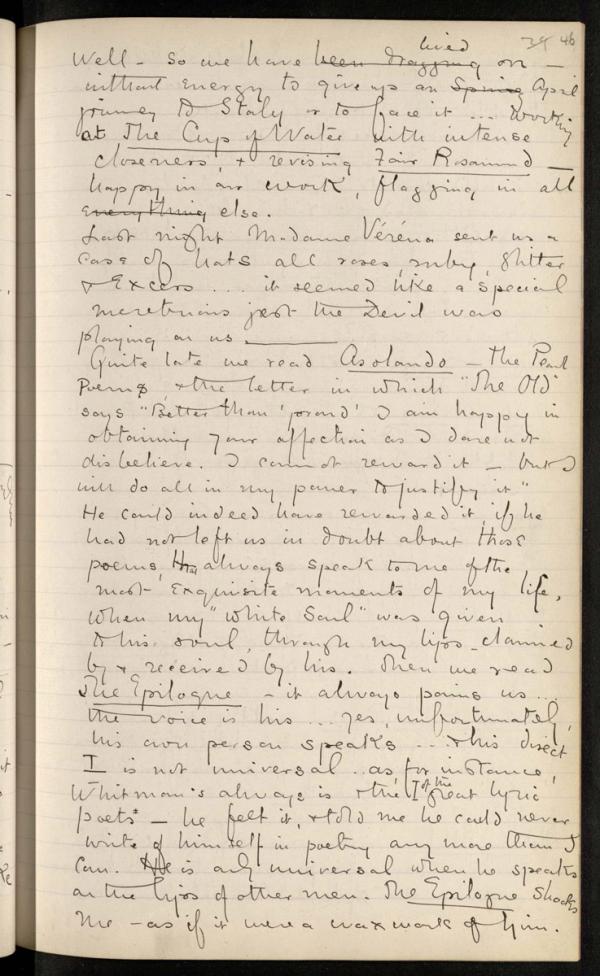 39 46
lived
Well – So we have been dragging on –
without energy to give up an Spring April
journey to Italy or to face it ... Working
at The Cup of Water with intense
closeness, & revising Fair Rosamund –
happy in our work, flagging in all
everything else.
Last night Madame Véréna sent us a
case of hats all roses, ruby, glitter
& Excess ... it seemed like a special
meretrious jest the Devil was
playing on us
Quite late we read Asolando – the Pearl
Poems, & the letter in which "The Old"
says "Better than 'proud' I am happy in
obtaining your affection as I dare not
disbelieve. I cannot reward it – but I
will do all in my power to justify it"
He could indeed have rewarded it, if he
had not left us in doubt about those
poems, that always speak to me of the
most exquisite moments of my life,
when my "white Soul" was given
to his soul, through my lips – claimed
by & received by his. Then we read
The Epilogue – it always pains us ...
the voice is his ... yes, unfortunately,
his own person speaks ... & his direct
I is not universal .. as, for instance,
Whitman's always is & the I of the great lyric
poets – he felt it, & told me he could never
write of himself in poetry any more than I
can. He is only universal when he speaks
on the lips of other men. The Epilogue shocks
me – as if it were a waxwork of him.